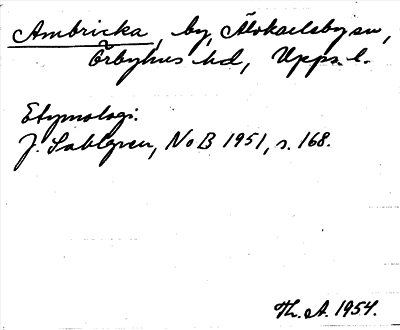 Ambricka, by, Älvkarleby sn,
Örbyhus hd, Upps. l.
Etymologi:
J. Sahlgren, NoB 1951, s. 168.
Th. A. 1954.